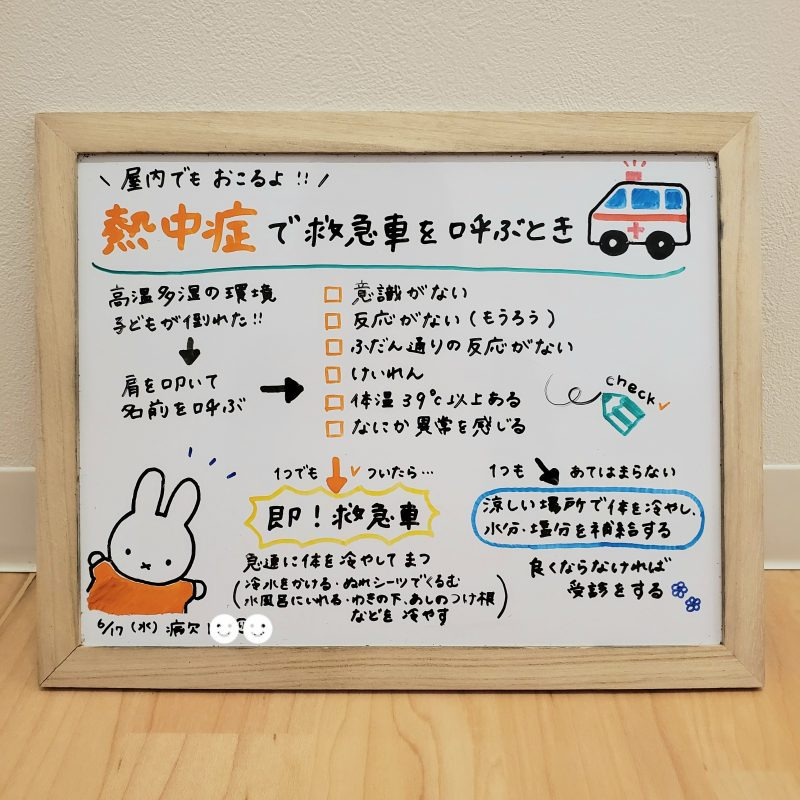 \ 屋内でも おこるよ !! /
熱中症で救急車を呼ぶとき
高温多湿の環境
子どもが倒れた!!
肩を叩いて
名前を呼ぶ
□ 意識がない
□ 反応がない(もうろう)
□ ふだん通りの反応がない
□ けいれん
□ 体温39℃以上ある
□ なにか異常を感じる
check✓
1つでも ✓ついたら…
即!救急車
急速に体を冷やしてまつ
(冷水をかける・ぬれシーツでくるむ
水風呂にいれる・わきの下、あしのつけ根
などを冷やす)
1つも あてはまらない
涼しい場所で体を冷やし、
水分・塩分を補給する
良くならなければ
受診をする
6/17(水) 病欠